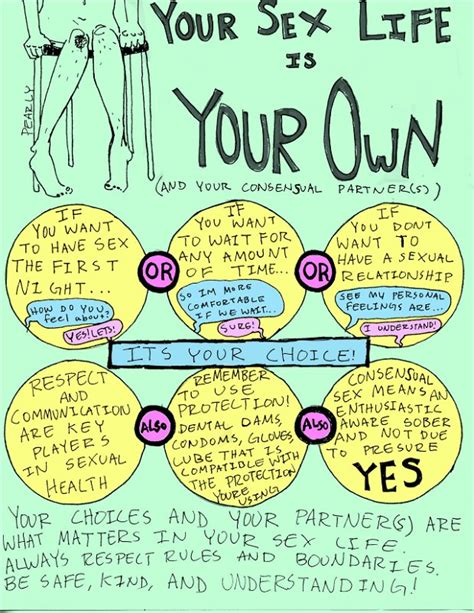 PEARLY
YOUR SEX LIFE
IS
YOUR OWN
(AND YOUR CONSENSUAL PARTNER(S))
IF
YOU WANT
TO HAVE SEX
THE FIRST
NIGHT...
HOW DO YOU
feel about?
YES! LETS!
OR
IF
YOU WANT
TO WAIT FOR
ANY AMOUNT
OF TIME...
SO IM MORE
COMFORTABLE
IF WE WAIT...
SURE!
OR
IF
YOU DONT
WANT TO
HAVE A SEXUAL
RELATIONSHIP
SEE MY PERSONAL
FEELINGS ARE...
I UNDERSTAND!
ITS YOUR CHOICE!
RESPECT
AND
COMMUNICATION
ARE KEY
PLAYERS
IN SEXUAL
HEALTH
ALSO
REMEMBER
TO USE
PROTECTION!
DENTAL DAMS,
CONDOMS, GLOVES,
LUBE THAT IS
COMPATIBLE WITH
THE PROTECTION
YOURE
USING
ALSO
CONSENSUAL
SEX MEANS AN
ENTHUSIASTIC
AWARE SOBER
AND NOT DUE
TO PRESURE
YES
YOUR CHOICES AND YOUR PARTNER(S) ARE
WHAT MATTERS IN YOUR SEX LIFE.
ALWAYS RESPECT RULES AND BOUNDARIES.
BE SAFE, KIND, AND UNDERSTANDING!